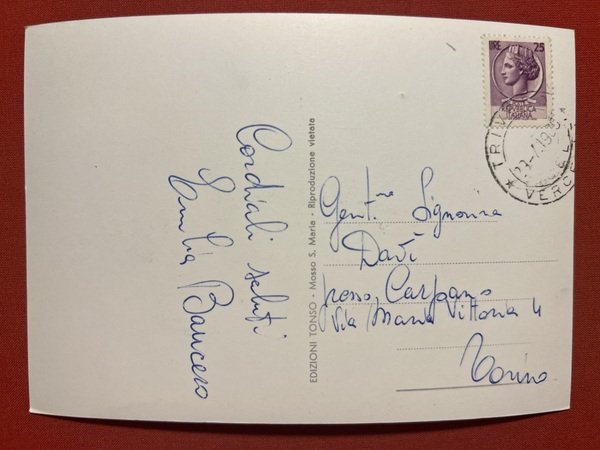 Cordiali saluti
Emilia Baucero
EDIZIONI TONSO - Mosso S. Maria - Riproduzione vietata
LIRE 25
REPUBBLICA
ITALIANA
TRIV
VERCE
Gent.ma Signorina
Davì
presso, Carpano
Via Maria Vittoria 4
Torino